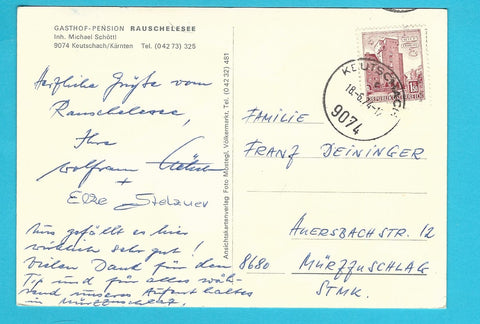 GASTHOF-PENSION RAUSCHELESEE
Inh. Michael Schöttl
9074 Keutschach/Kärnten Tel. (0 42 73) 325
Herzliche Grüße vom
Rauschelesee,
Ihre
Wolfram
+
Elke
Uns gefällt es hier
wirklich sehr gut!
Vielen Dank für den
Tip und für alles wäh-
rend unseres Aufenthaltes
in Mürzzuschlag.
Ansichtskartenverlag Foto Mörtegl, Völkermarkt, Tel. (0 42 32) 481
KEUTSCHACH
18.-6.74-12
9074
REPUBLIK ÖSTERREICH
FAMILIE
FRANZ DEININGER
AUERSBACHSTR. 12
8680 MÜRZZUSCHLAG
STMK.